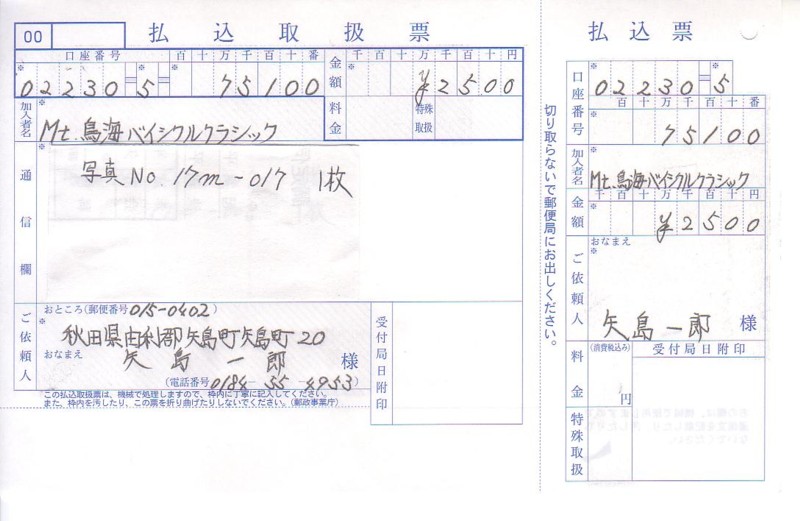 払込取扱票
00
口座番号 百十万千百十番
02230=5= 75100
金額 千百十万千百十円
¥2500
料金 特殊取扱
加入者名 Mt.鳥海バイシクルクラシック
通信欄
写真No. 17m-017 1枚
ご依頼人
おところ(郵便番号015-0402)
秋田県由利郡矢島町矢島町20
おなまえ
矢島 一郎 様
(電話番号0184-55-4953)
受付局日附印
この払込取扱票は、機械で処理しますので、枠内に丁寧に記入してください。
また、枠内を汚したり、この票を折り曲げたりしないでください。(郵政事業庁)
切り取らないで郵便局にお出しください。
払込票
口座番号
02230=5
百十万千百十番
75100
加入者名 Mt.鳥海バイシクルクラシック
金額 千百十万千百十円
¥2500
ご依頼人
おなまえ
矢島 一郎 様
料金 (消費税込み) 円
受付局日附印
特殊取扱